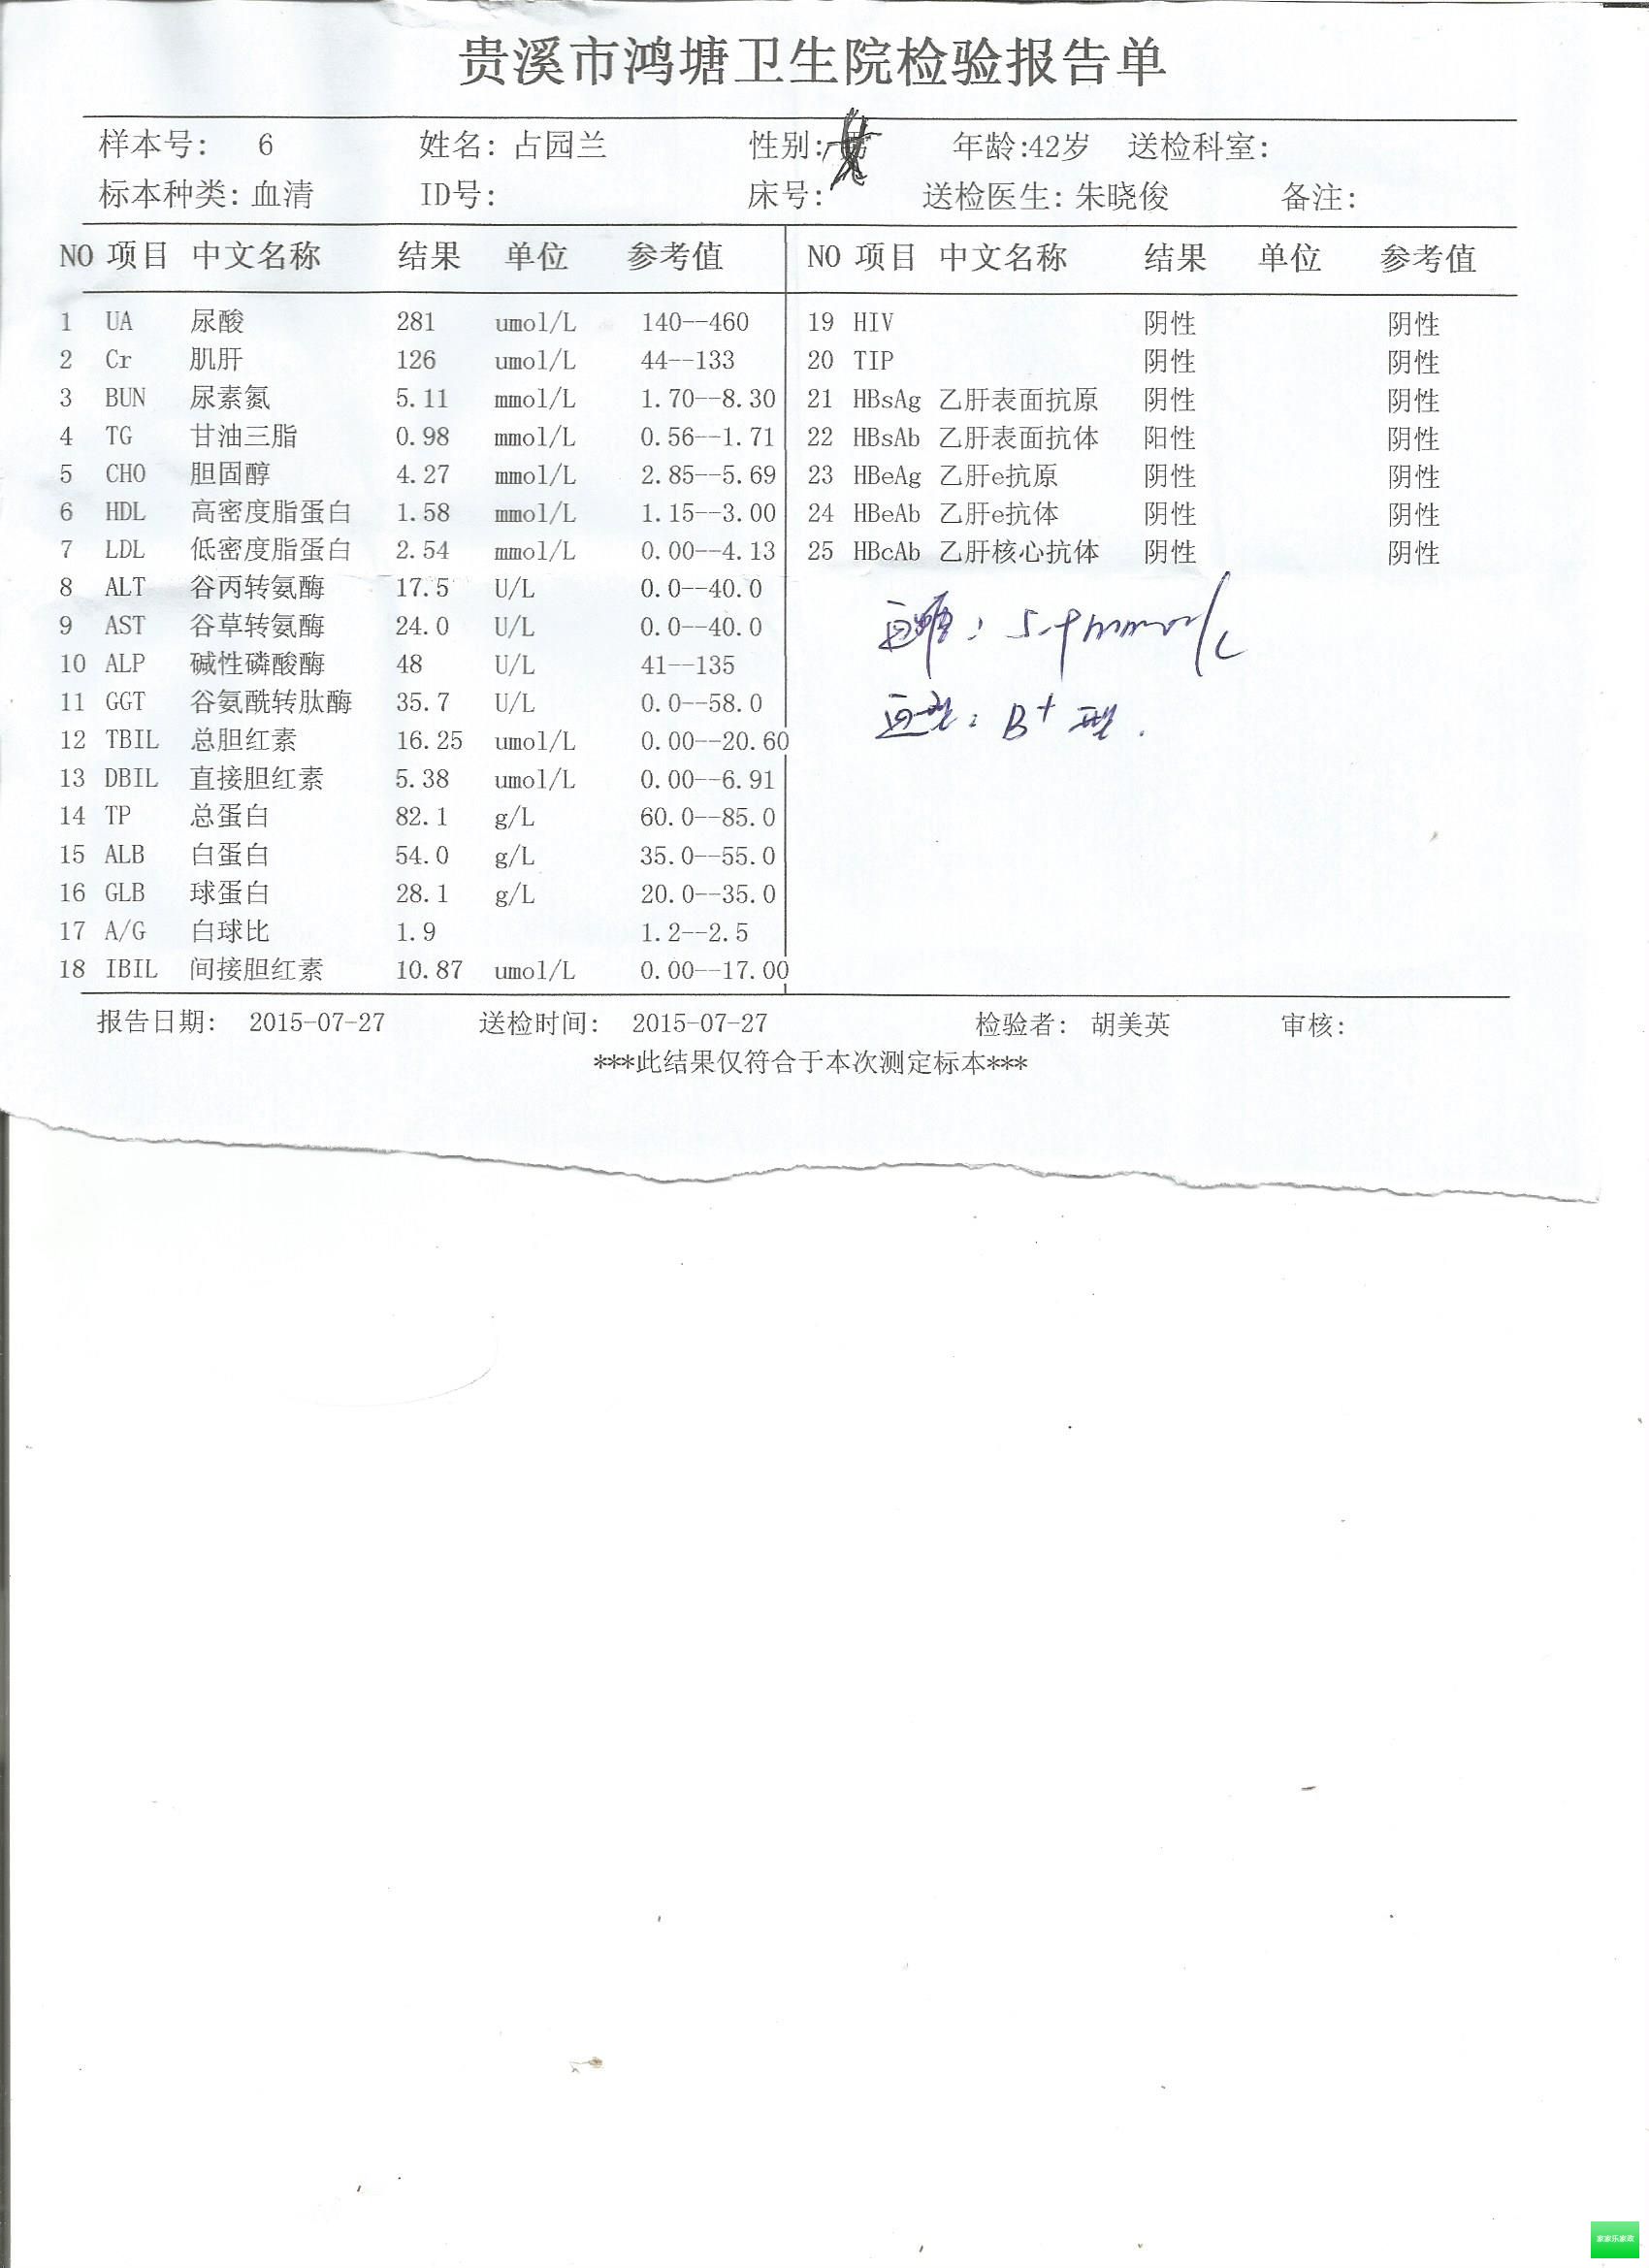 贵溪市鸿塘卫生院检验报告单
样本号: 6 姓名: 占园兰 性别: 年龄:42岁 送检科室:
标本种类: 血清 ID号: 床号: 送检医生: 朱晓俊 备注:
NO 项目 中文名称 结果 单位 参考值 NO 项目 中文名称 结果 单位 参考值
1 UA 尿酸 281 umol/L 140--460 19 HIV 阴性 阴性
2 Cr 肌肝 126 umol/L 44--133 20 TIP 阴性 阴性
3 BUN 尿素氮 5.11 mmol/L 1.70--8.30 21 HBsAg 乙肝表面抗原 阴性 阴性
4 TG 甘油三脂 0.98 mmol/L 0.56--1.71 22 HBsAb 乙肝表面抗体 阳性 阴性
5 CHO 胆固醇 4.27 mmol/L 2.85--5.69 23 HBeAg 乙肝e抗原 阴性 阴性
6 HDL 高密度脂蛋白 1.58 mmol/L 1.15--3.00 24 HBeAb 乙肝e抗体 阴性 阴性
7 LDL 低密度脂蛋白 2.54 mmol/L 0.00--4.13 25 HBcAb 乙肝核心抗体 阴性 阴性
8 ALT 谷丙转氨酶 17.5 U/L 0.0--40.0
9 AST 谷草转氨酶 24.0 U/L 0.0--40.0
血糖: mmol/L
10 ALP 碱性磷酸酶 48 U/L 41--135
11 GGT 谷氨酰转肽酶 35.7 U/L 0.0--58.0
血型: B+型.
12 TBIL 总胆红素 16.25 umol/L 0.00--20.60
13 DBIL 直接胆红素 5.38 umol/L 0.00--6.91
14 TP 总蛋白 82.1 g/L 60.0--85.0
15 ALB 白蛋白 54.0 g/L 35.0--55.0
16 GLB 球蛋白 28.1 g/L 20.0--35.0
17 A/G 白球比 1.9 1.2--2.5
18 IBIL 间接胆红素 10.87 umol/L 0.00--17.00
报告日期: 2015-07-27 送检时间: 2015-07-27 检验者: 胡美英 审核:
***此结果仅符合于本次测定标本***
家家乐家政